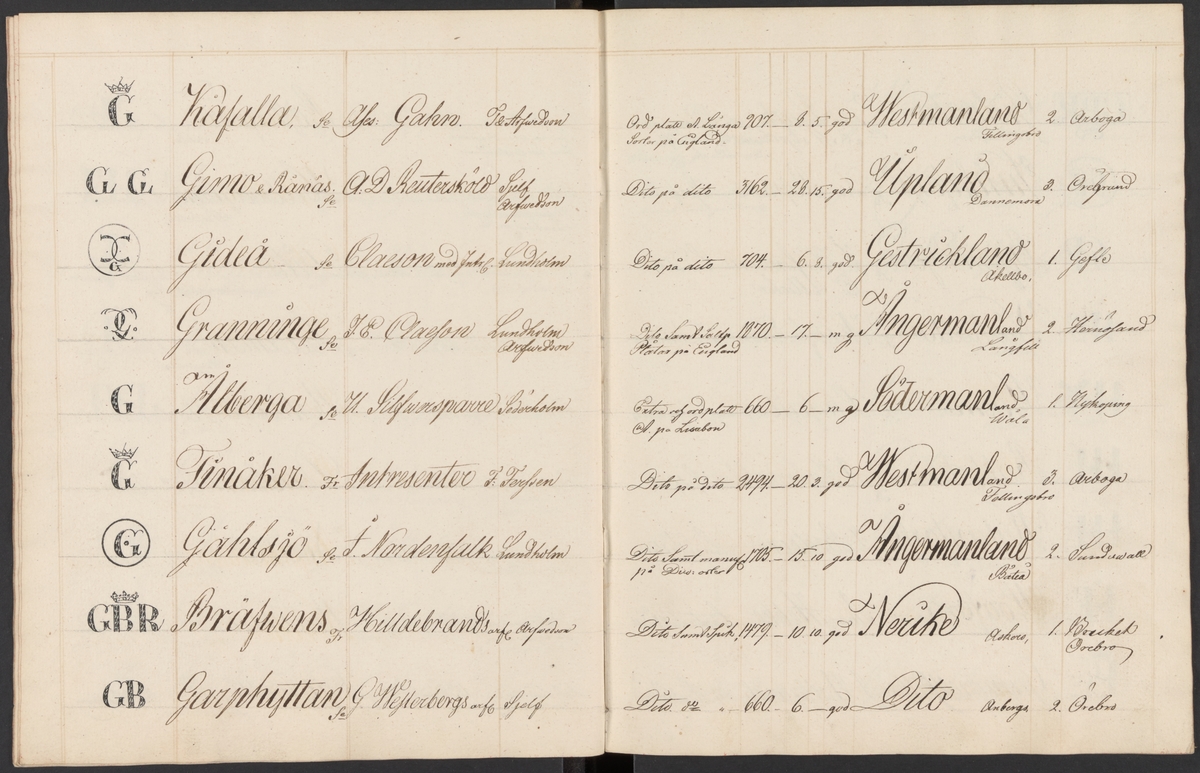 G Kåfalla, Se Ases: Gahn. T & Arfwedson Ord plate A. Länga 907. — 8. 5. god Westmanland 2. Arboga
Sorter på England. Fellingsbro
GL GL Gimo & Rånäs. A: D Reutersköld Sjelf Dito på dito 3162. — 28. 15. god Upland 3. Öregrund
Se Arfwedson Dannemora
G Gideå Se Claeson med Lundholm Dito på dito 704. — 6. 3. god Gestrickland 1. Gefle
Åkellbo,
Graninge Se Claeson Lundholm Dito Samt 1070 — 17. — m g Ångermanland 2. Hernösand
Arfwedson Plåtar på England Långsele
G Ålberga Se U. Silfwersparre Söderholm Extra ord plate 660 — 6 — m g Södermanland 1. Nyköping
A. på Lissabon
G Finåker. Fr Intresenter F. Ferssen Dito på dito 2494. — 20. 3. god Westmanland 3. Arboga
Fellingsbro
G Gåhlsjö Se Nordenfalk Lundholm Dito Samt manuf 1705. — 15. 10 god Ångermanland 2. Sundswall
på Diw: orter
GBR Bräfwens Fr Hilldebrands arf. Arfwedson Dito Samt Spik. 1479. — 10. 10. god Nerike Askers, 1.
Örebro
GB Garphyttan Se G. Westerbergs arf. Sjelf Dito do " 660. — 6. — god Dito 2. Örebro